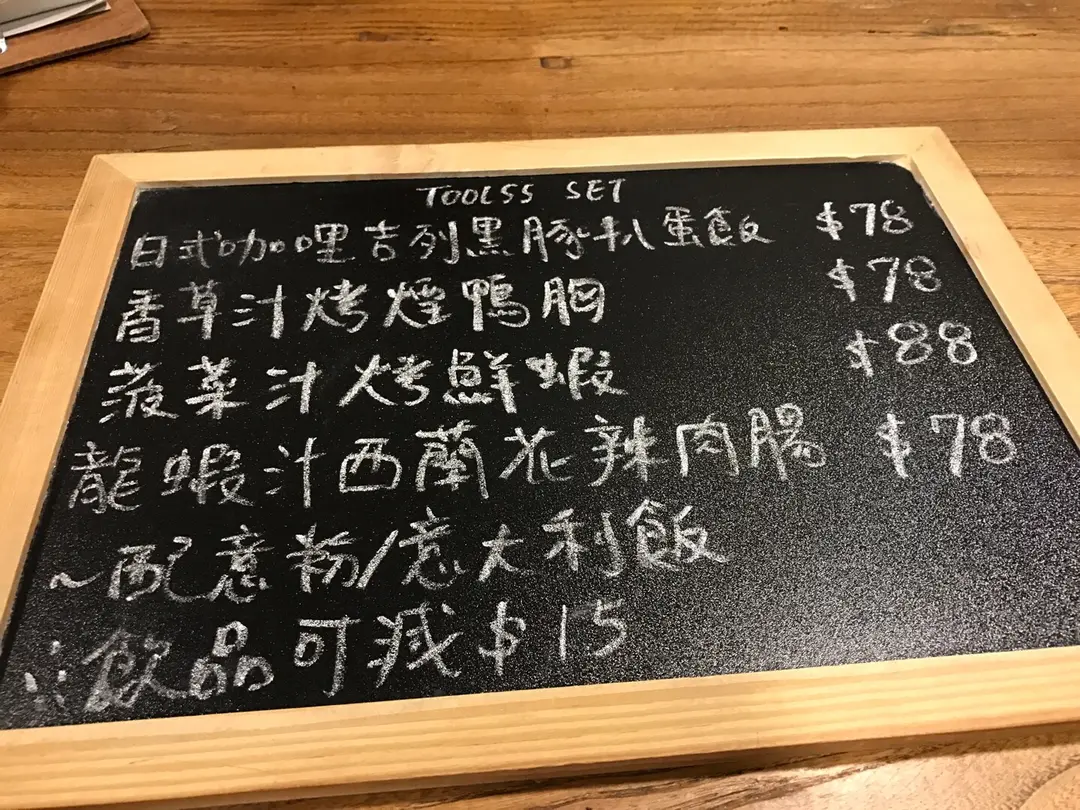 TOOLSS SET
日式咖哩吉列黑豚扒蛋飯 $78
香草汁烤煙鴨胸 $78
菠菜汁烤鮮蝦 $88
龍蝦汁西蘭花辣肉腸 $78
~配意粉/意大利飯
※飲品可減$15